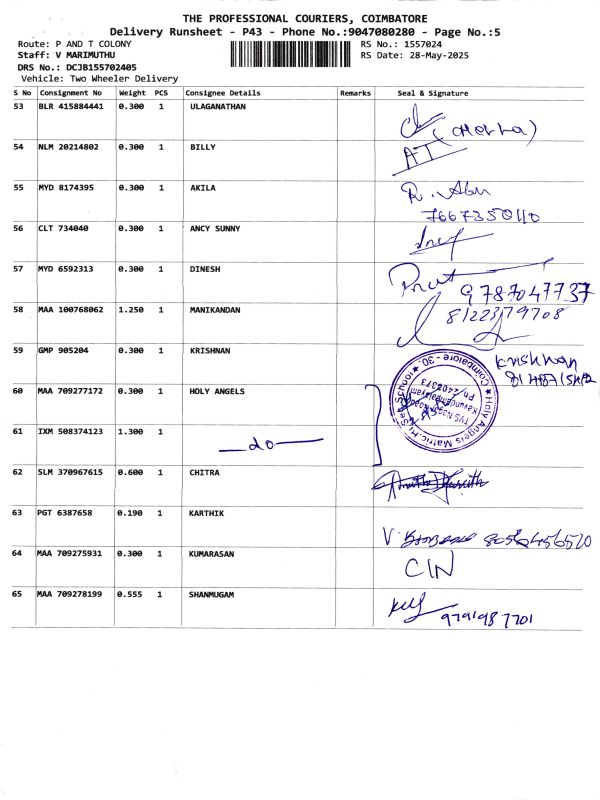 THE PROFESSIONAL COURIERS, COIMBATORE
Delivery Runsheet - P43 - Phone No.:9047080280 - Page No.:5
Route: P AND T COLONY
RS No.: 1557024
Staff: V MARIMUTHU
RS Date: 28-May-2025
DRS No.: DCJB155702405
Vehicle: Two Wheeler Delivery
S No Consignment No Weight PCS Consignee Details Remarks Seal & Signature
53 BLR 415884441 0.300 1 ULAGANATHAN
54 NLM 20214802 0.300 1 BILLY
55 MYD 8174395 0.300 1 AKILA
7667350110
56 CLT 734040 0.300 1 ANCY SUNNY
57 MYD 6592313 0.300 1 DINESH
9787047737
58 MAA 100768062 1.250 1 MANIKANDAN
8122379708
59 GMP 905204 0.300 1 KRISHNAN
Krishnan
60 MAA 709277172 0.300 1 HOLY ANGELS
61 IXM 508374123 1.300 1 —do—
62 SLM 370967615 0.600 1 CHITRA
63 PGT 6387658 0.190 1 KARTHIK
8056456520
64 MAA 709275931 0.300 1 KUMARASAN
CIN
65 MAA 709278199 0.555 1 SHANMUGAM
9791987701